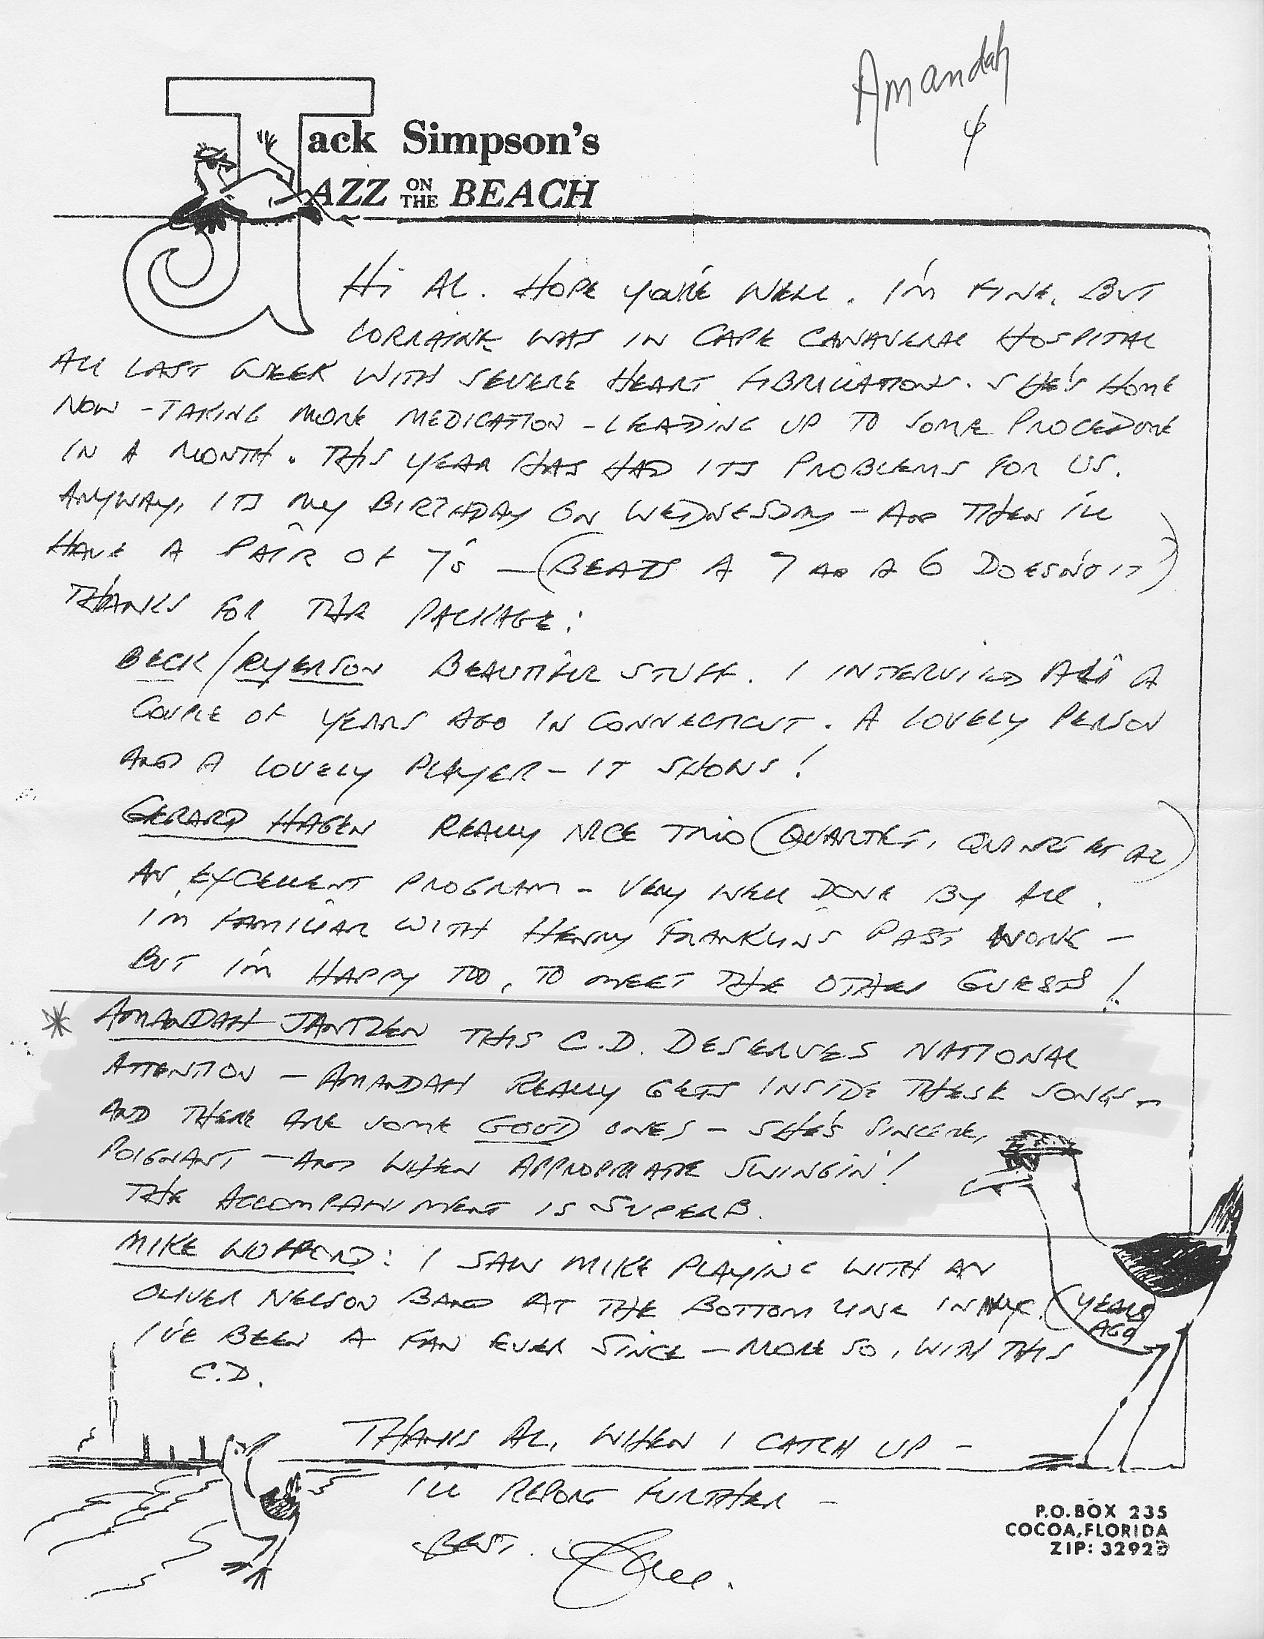 Amandah
4
Jack Simpson's
JAZZ ON THE BEACH
Hi AL. HOPE YOU'RE WELL. I'M FINE, BUT
LORRAINE WAS IN CAPE CANAVERAL HOSPITAL
ALL LAST WEEK WITH SEVERE HEART FIBRILLATIONS. SHE'S HOME
NOW - TAKING MORE MEDICATION - LEADING UP TO SOME PROCEDURE
IN A MONTH. THIS YEAR HAS HAD ITS PROBLEMS FOR US.
ANYWAY, ITS MY BIRTHDAY ON WEDNESDAY - AND THEN I'LL
HAVE A PAIR OF 7'S - (BEATS A 7 AND A 6 DOESN'T IT)
THANKS FOR THE PACKAGE:
BECK/RYERSON BEAUTIFUL STUFF. I INTERVIEWED ALI A
COUPLE OF YEARS AGO IN CONNECTICUT. A LOVELY PERSON
AND A LOVELY PLAYER - IT SHOWS!
GERARD HAGEN REALLY NICE TRIO (QUARTET, QUINTET ET AL)
AN EXCELLENT PROGRAM - VERY WELL DONE BY ALL.
I'M FAMILIAR WITH HENRY FRANKLIN'S PAST WORK -
BUT I'M HAPPY TOO, TO MEET THE OTHER GUESTS!
* AMANDAH JANTZEN THIS C.D. DESERVES NATIONAL
ATTENTION - AMANDAH REALLY GETS INSIDE THESE SONGS -
AND THERE ARE SOME GOOD ONES - SHE'S SINCERE,
POIGNANT - AND WHEN APPROPRIATE SWINGIN'!
THE ACCOMPANIMENT IS SUPERB.
MIKE WOFFORD: I SAW MIKE PLAYING WITH AN
OLIVER NELSON BAND AT THE BOTTOM LINE IN NYC. (YEARS AGO)
I'VE BEEN A FAN EVER SINCE - MORE SO, WITH THIS
C.D.
THANKS AL, WHEN I CATCH UP -
I'LL REPORT FURTHER -
BEST.
P.O. BOX 235
COCOA, FLORIDA
ZIP: 32923